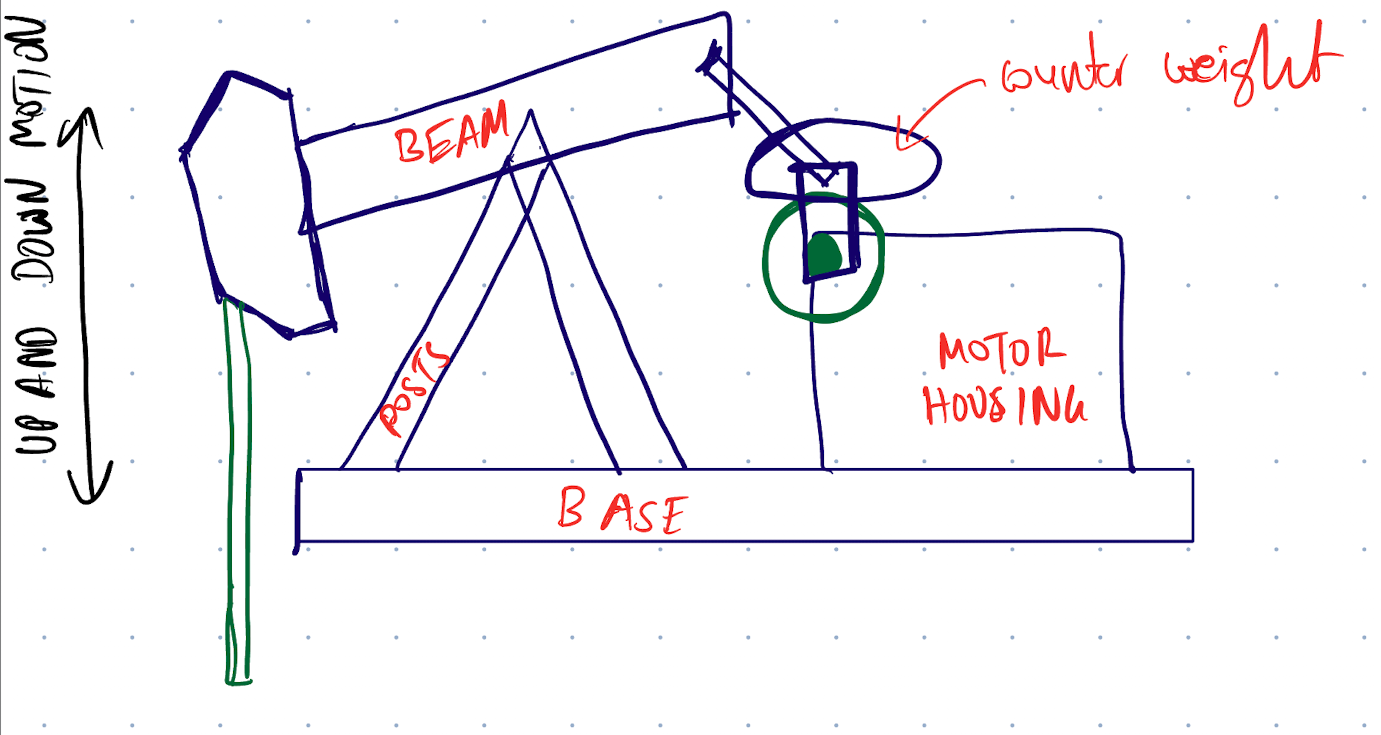 UP AND DOWN MOTION
BEAM
counter weight
POSTS
MOTOR
HOUSING
BASE